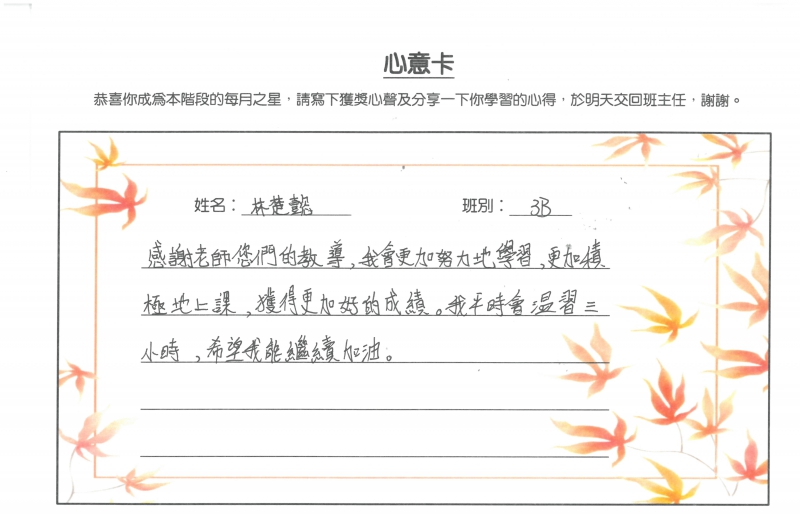 心意卡
恭喜你成為本階段的每月之星，請寫下獲獎心聲及分享一下你學習的心得，於明天交回班主任，謝謝。
姓名：林楚懿 班別：3B
感謝老師您們的教導，我會更加努力地學習，更加積
極地上課，獲得更加好的成績。我平時會温習三
小時，希望我能繼續加油。